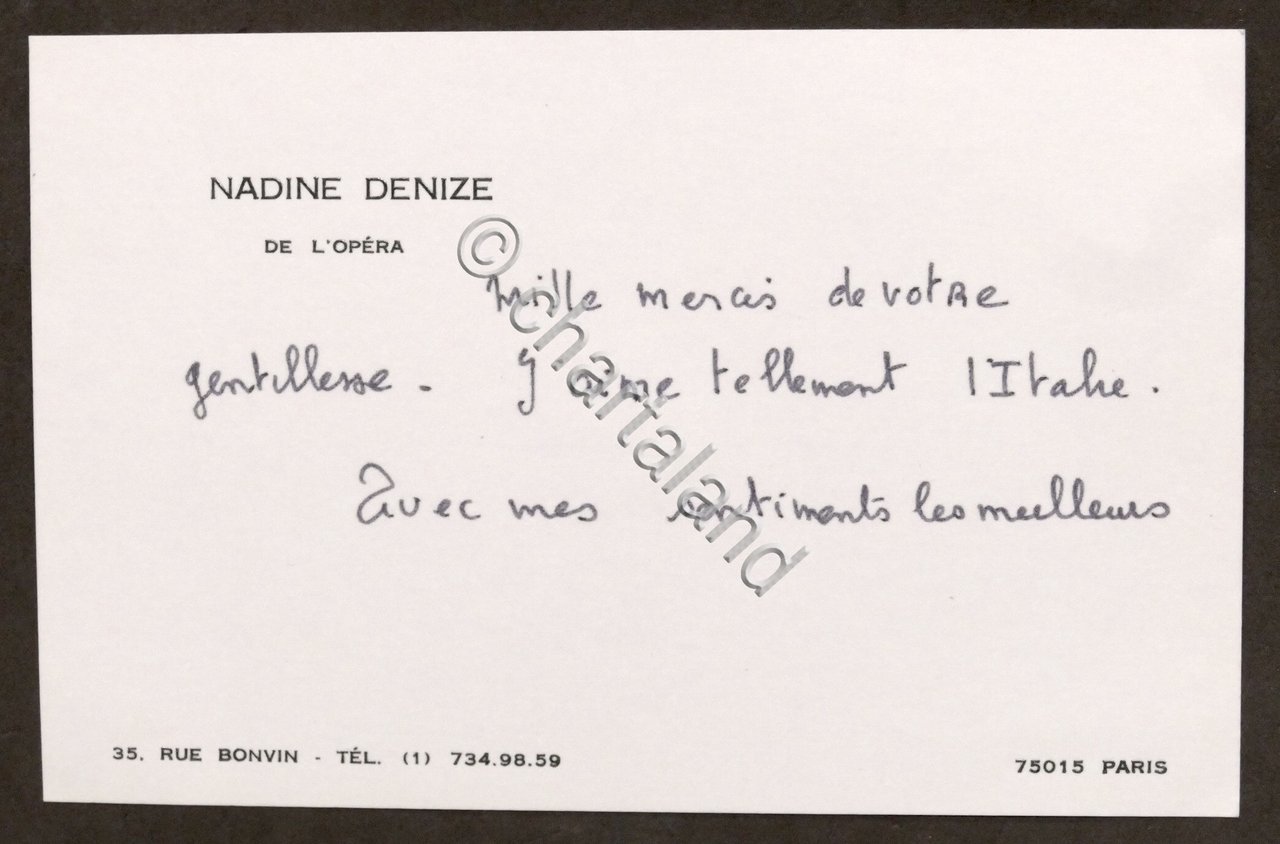 NADINE DENIZE
DE L'OPÉRA
Mille mercis de votre
gentillesse. J'aime tellement l'Italie.
Avec mes sentiments les meilleurs
35. RUE BONVIN - TÉL. (1) 734.98.59
75015 PARIS
© chartaland